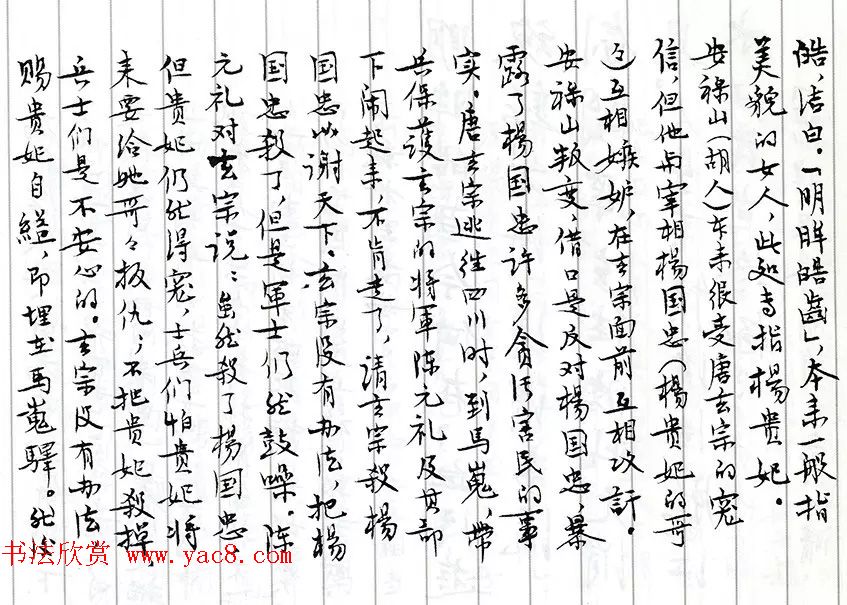 皓,洁白。「明眸皓齒」,本来一般指
美貌的女人,此处专指楊贵妃。
安祿山(胡人)本来很受唐玄宗的寵
信,但他与宰相楊国忠(楊贵妃的哥
々)互相嫉妒,在玄宗面前互相攻訐。
安祿山叛变,借口是反对楊国忠,暴
露了楊国忠许多貪污害民的事
实。唐玄宗逃往四川时,到馬嵬,帶
兵保護玄宗的将軍陈元礼及其部
下闹起来,不肯走了,请玄宗殺楊
国忠以谢天下。玄宗没有办法,把楊
国忠殺了,但是軍士们然鼓噪。陈
元礼对玄宗说:虽然殺了楊国忠
但贵妃仍然得寵,士兵们怕贵妃将
来要给她哥々报仇;不把贵妃殺掉,
兵士们是不安心的。玄宗没有办法
赐贵妃自縊,即埋在馬嵬驛。然
书法欣赏 www.yac8.com